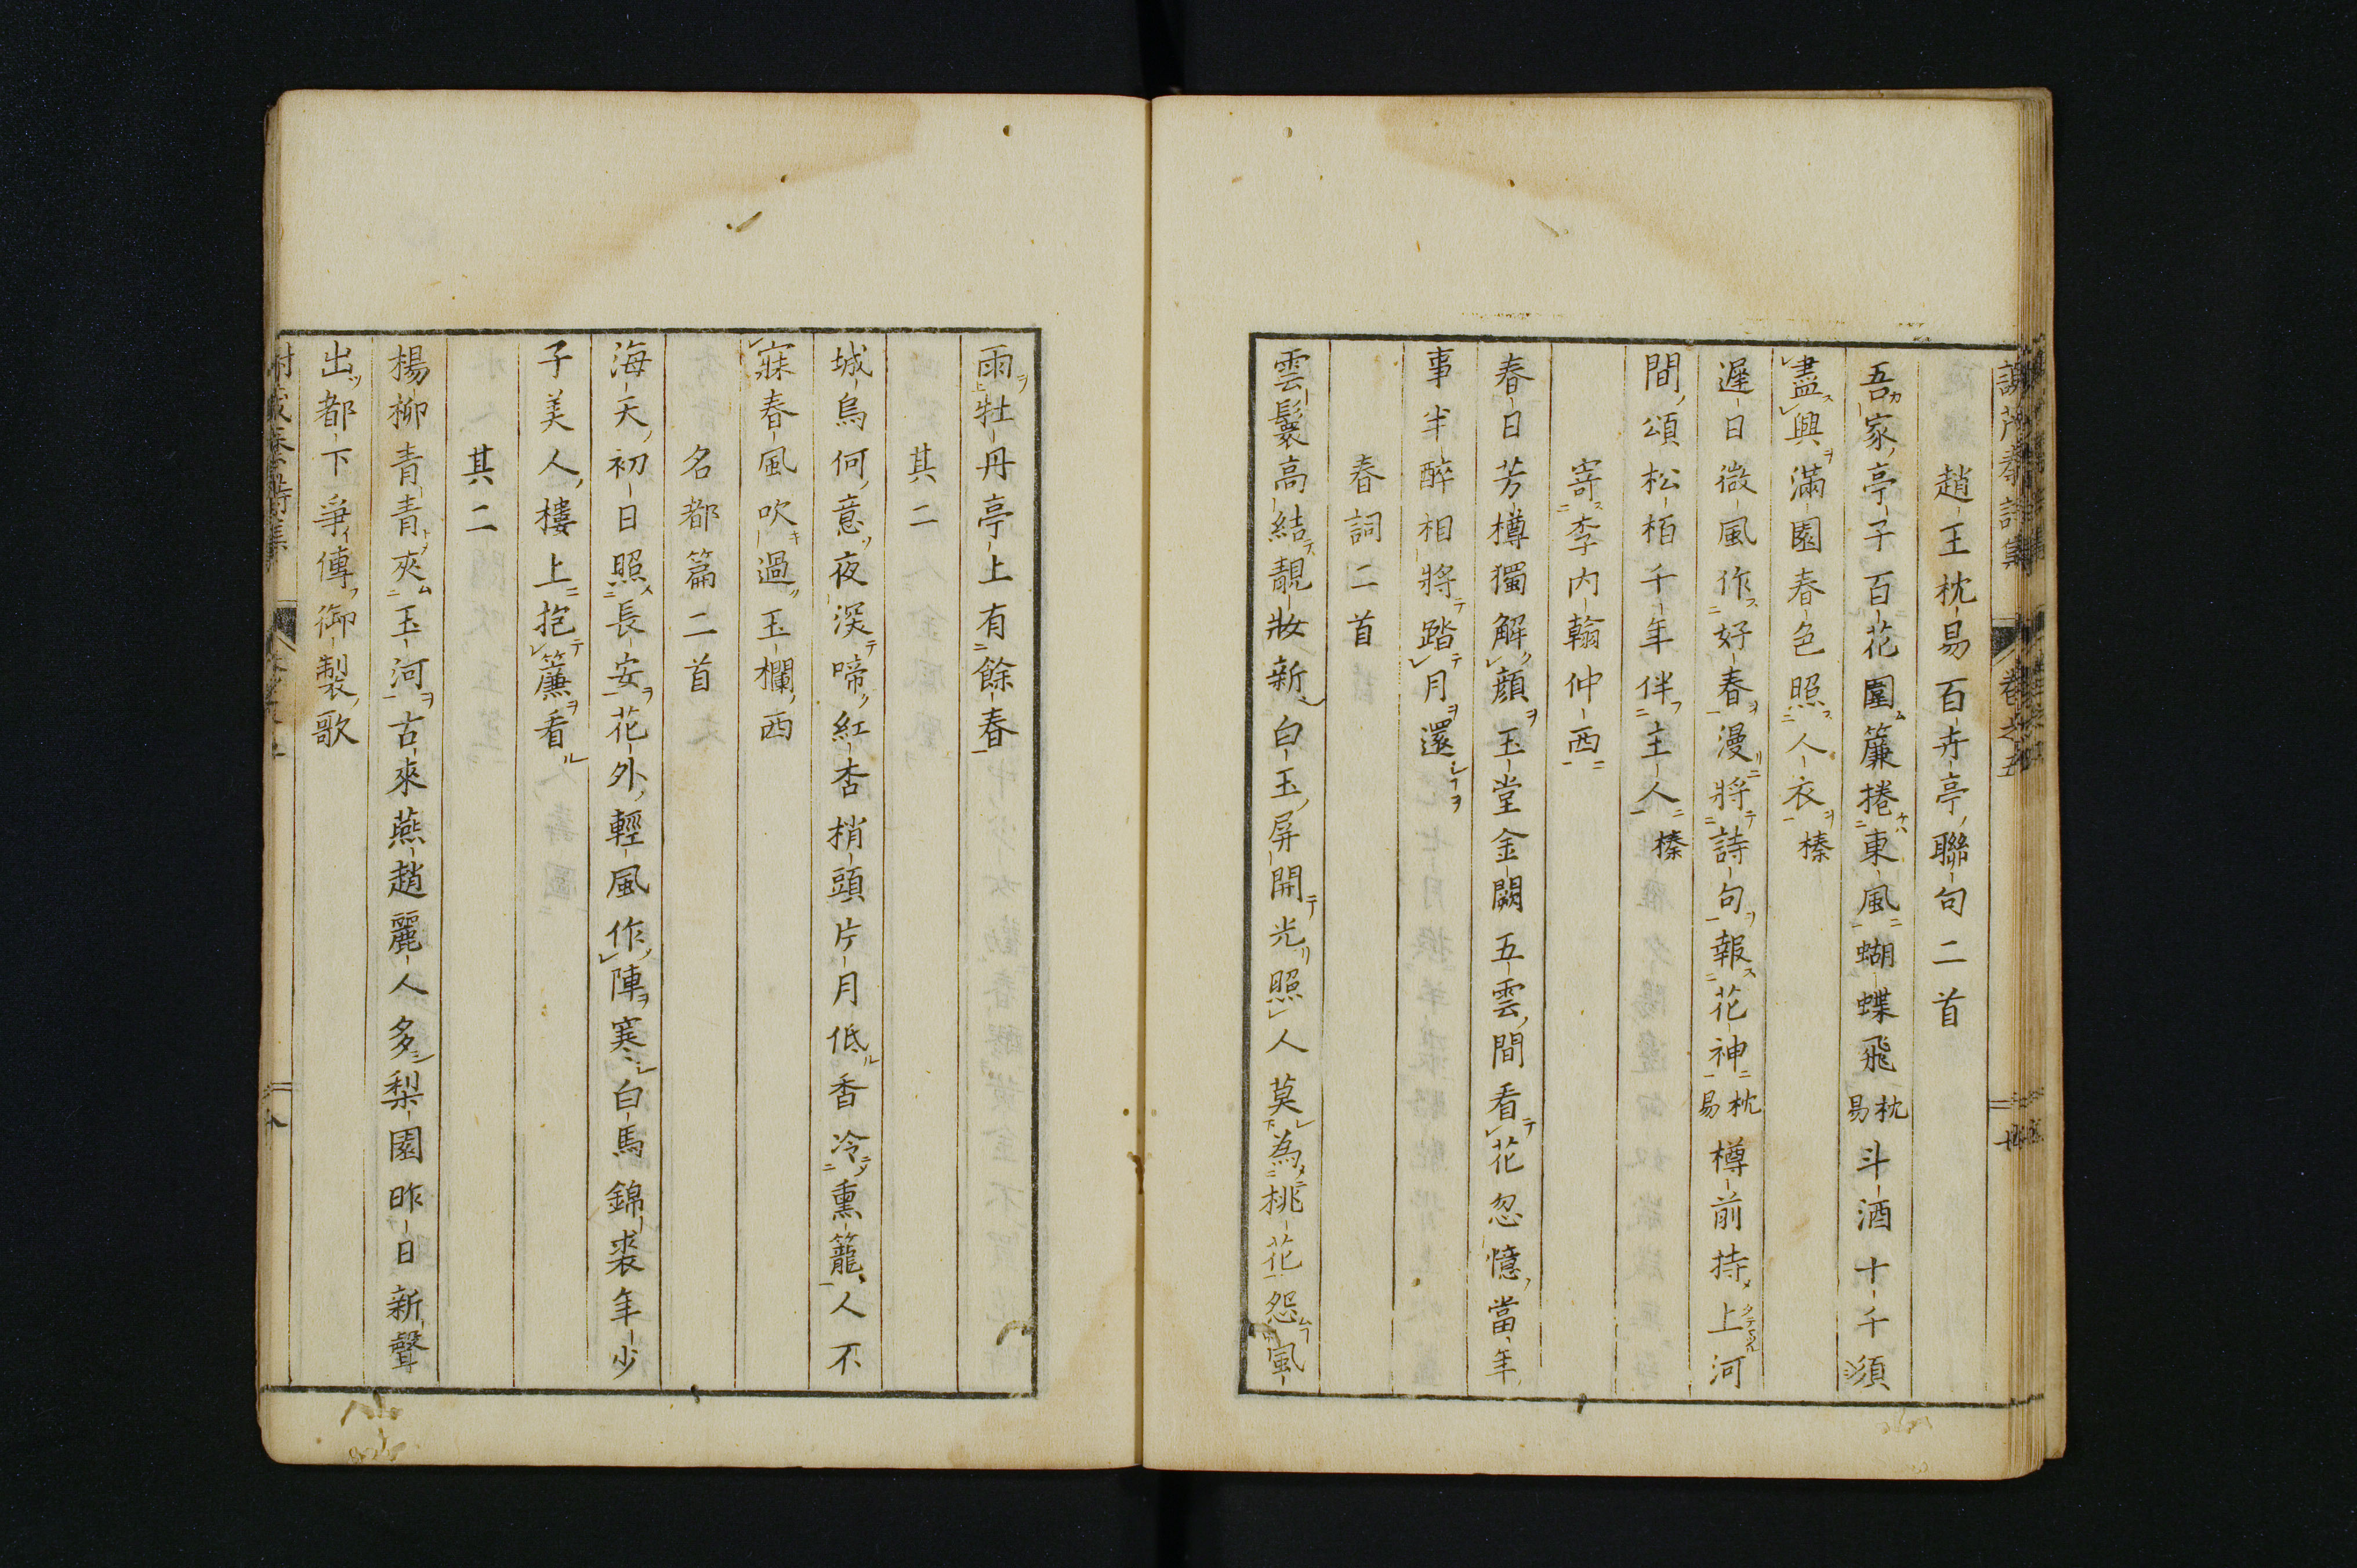 趙王枕易百卉亭聯句二首
吾家亭子百花圍簾捲東風蝴蝶飛枕易斗酒十千須
盡興滿園春色照人衣榛
遲日微風作好春漫將詩句報花神枕易樽前持上河
間頌松栢千年伴主人榛
寄李内翰仲西
春日芳樽獨解顔玉堂金闕五雲間看花忽憶當年
事半醉相將踏月還
春詞二首
雲鬟高結靚妝新白玉屏開光照人莫為桃花怨風
雨牡丹亭上有餘春
其二
城烏何意夜深啼紅杏梢頭片月低香冷熏籠人不
寐春風吹過玉欄西
名都篇二首
海天初日照長安花外輕風作陣寒白馬錦裘年少
子美人樓上抱簾看
其二
楊柳青青夾玉河古來燕趙麗人多梨園昨日新聲
出都下爭傳御製歌